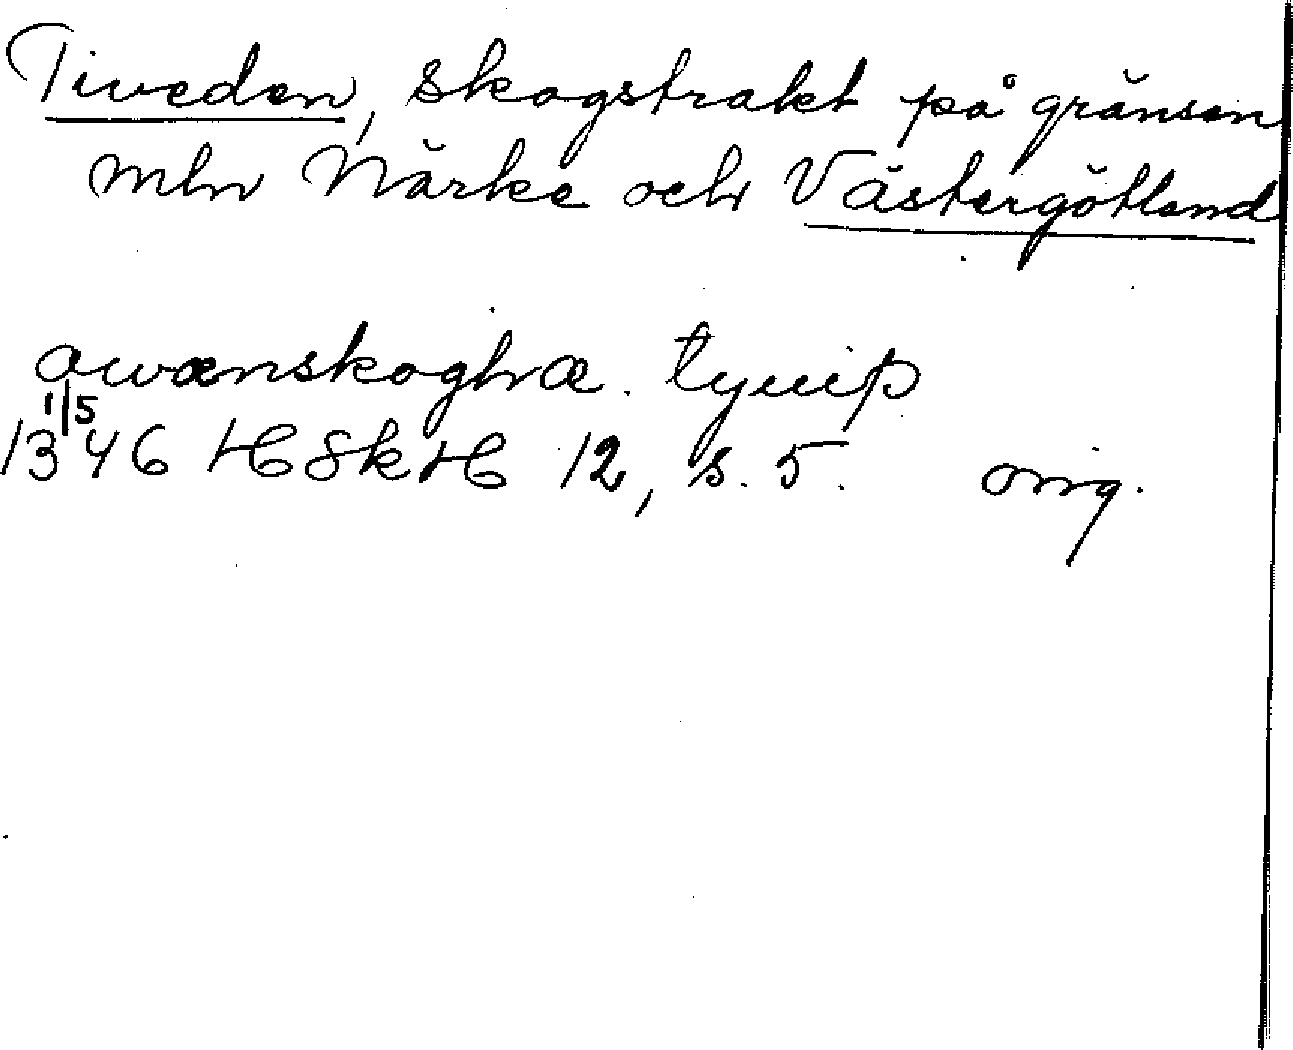 Tiveden, skogstrakt på gränsen
mln Närke och Västergötland
awænskoghæ. tyuiþ
1/5
1346 HSkH 12, s. 5. orig.